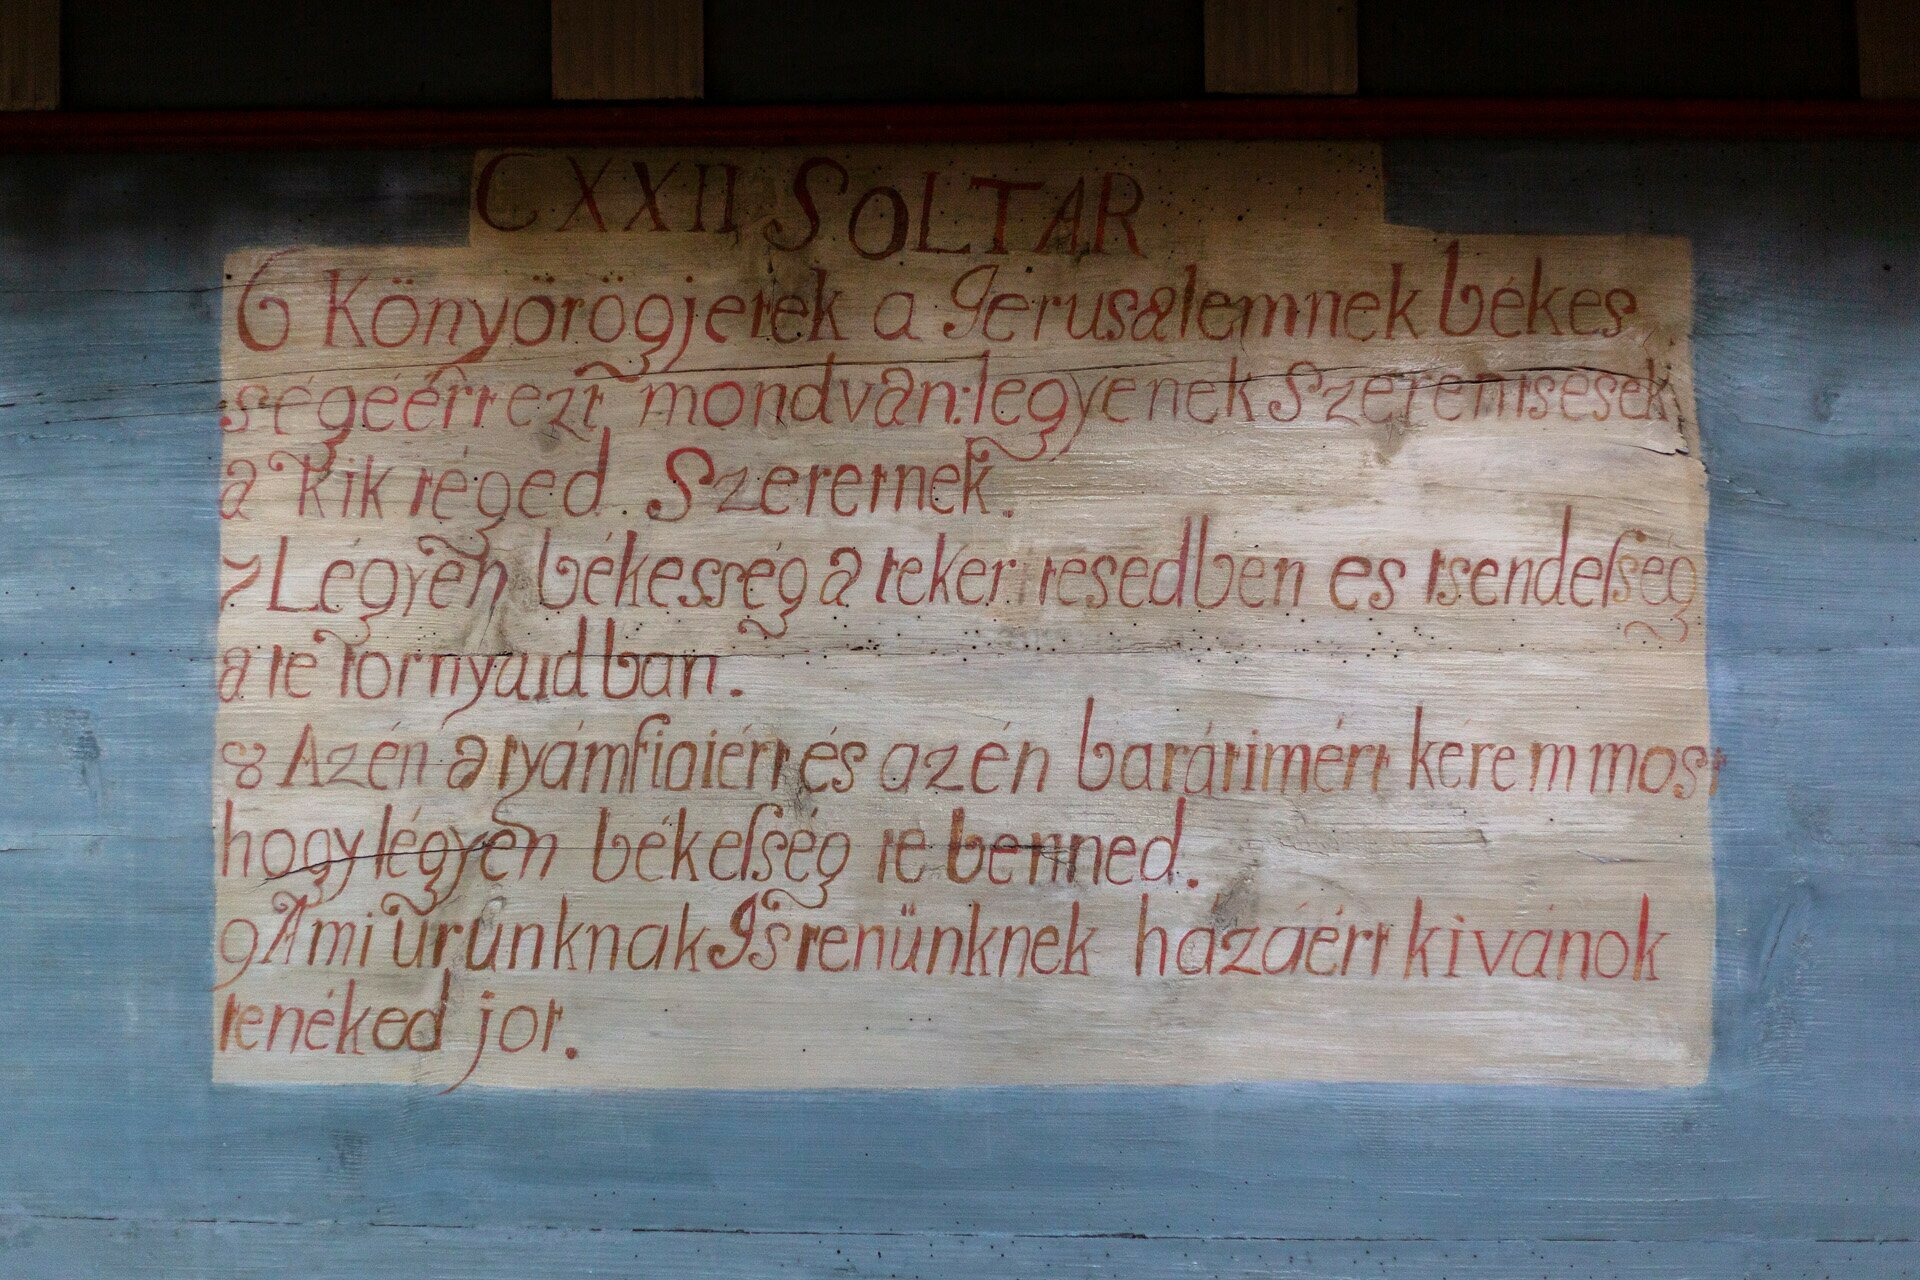 CXXII SOLTAR
6 Könyörögjetek a Jérusalemnek békes
ségéért ezt mondván: légyenek Szerentsések
a kik téged Szeretnek.
7 Légyen békesség a te kerítésedben es tsendesség
a te tornyaidban.
8 Az én atyámfiaiért és az én barátimért kerem most
hogy légyen békesség te benned.
9 A mi Urunknak Istenünknek házáért kívánok
tenéked jot.